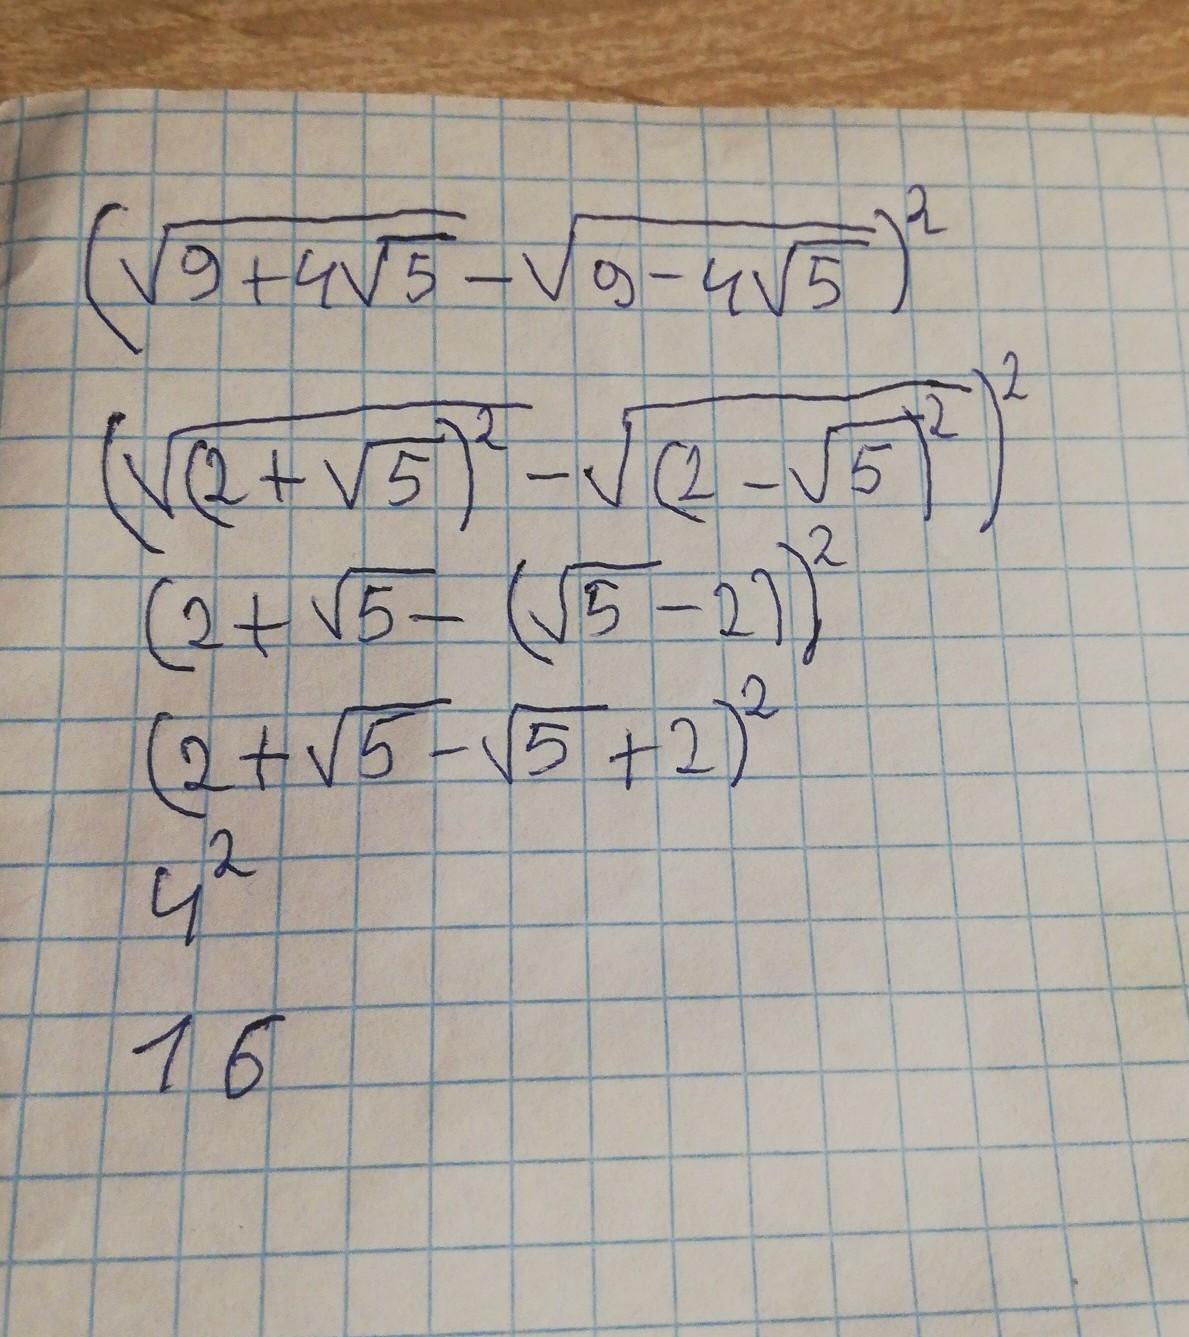 (√(9+4√5) - √(9-4√5))²
(√((2+√5)²) - √((2-√5)²))²
(2+√5-(√5-2))²
(2+√5-√5+2)²
4²
16